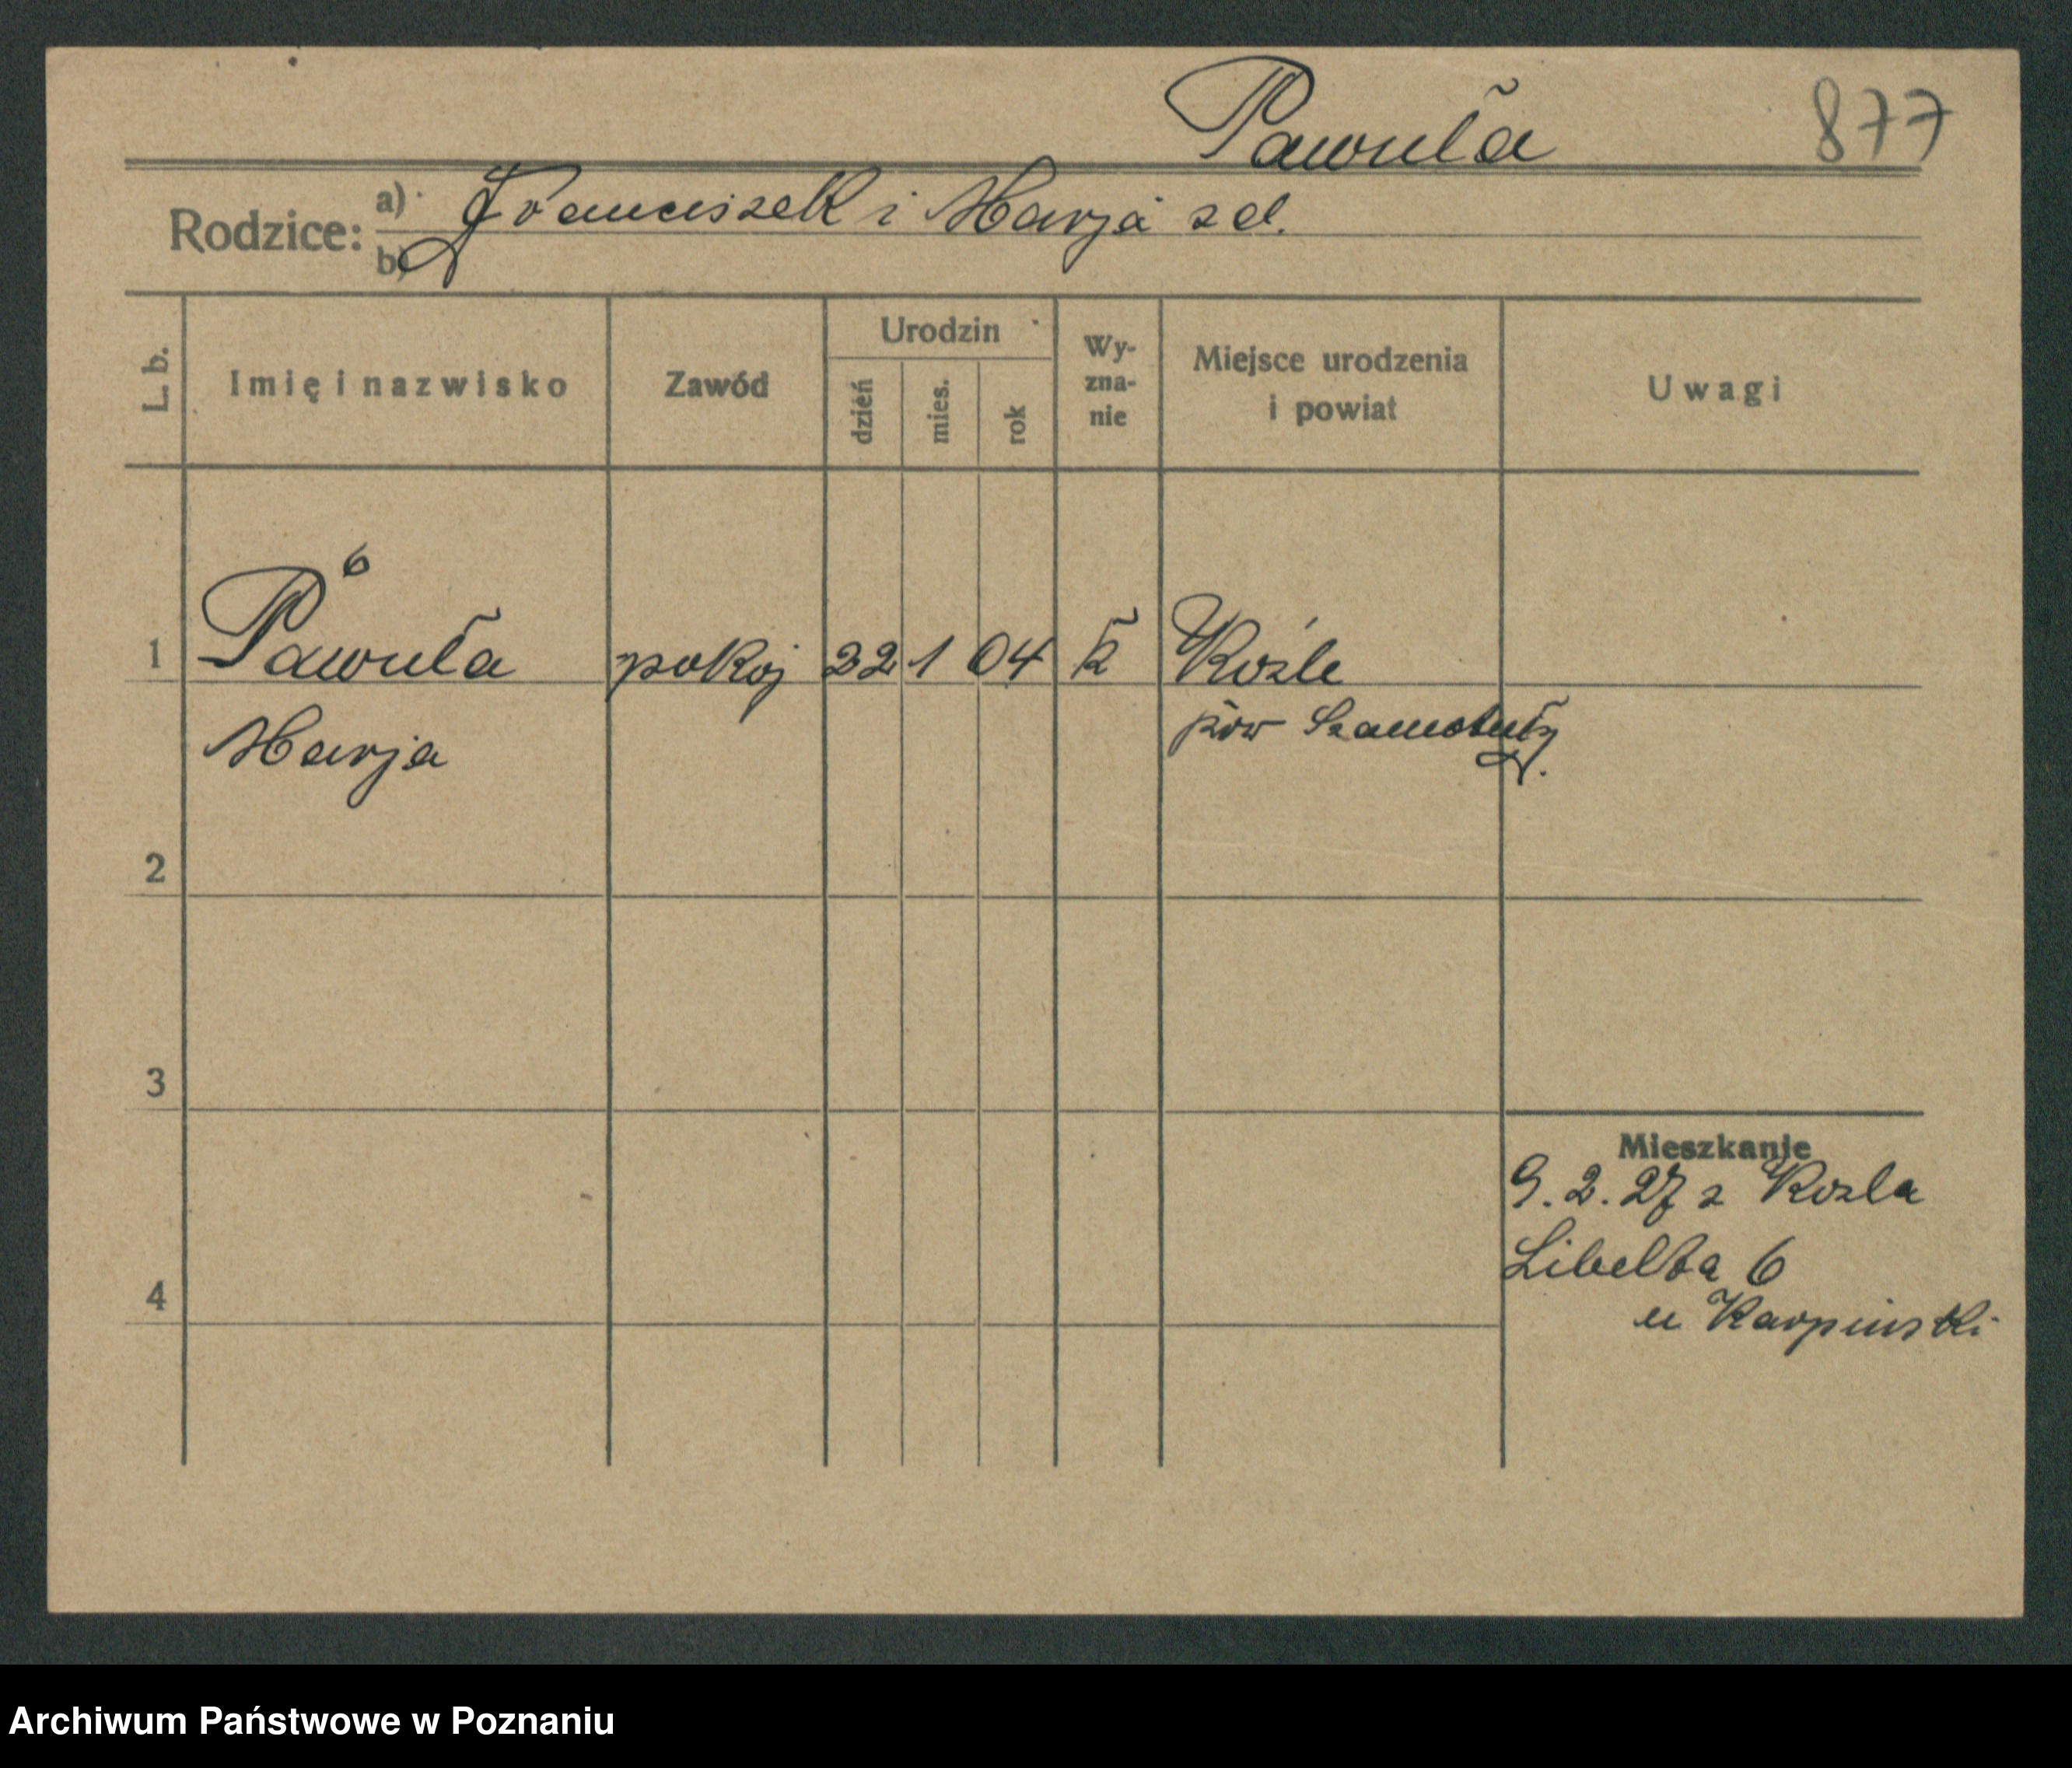 Pawuła 877
Rodzice: a) Franciszek i Marja zd.
b)
L. b. Imię i nazwisko Zawód Urodzin dzień mies. rok Wy-zna-nie Miejsce urodzenia i powiat Uwagi
6
1 Pawuła pokoj 22 1 04 k Koźle
Marja pow Szamotuły
2
3
Mieszkanie
9. 2. 27 z Kozla
Libelta 6
4
u Karpinski
Archiwum Państwowe w Poznaniu